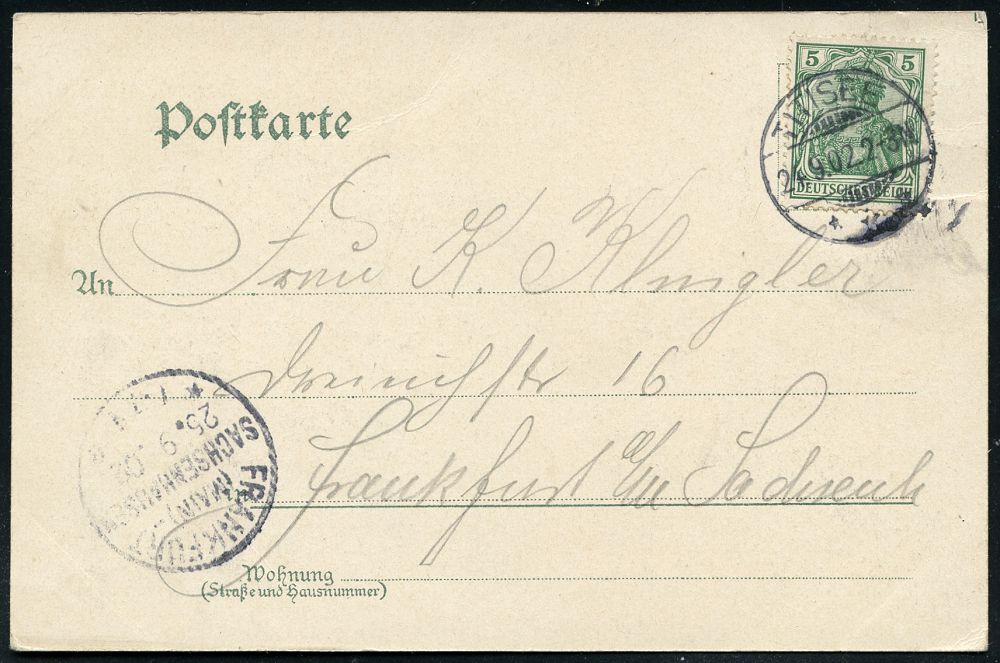 5 5
TITISEE
24.9.02.2-3N
DEUTSCHES REICH
Postkarte
An Frau K. Klingler
Dreieichstr 16
in Frankfurt a/M Sachsenh
Wohnung
(Straße und Hausnummer)
FRANKFURT
(MAIN)
SACHSENHAUSEN
25.9.02